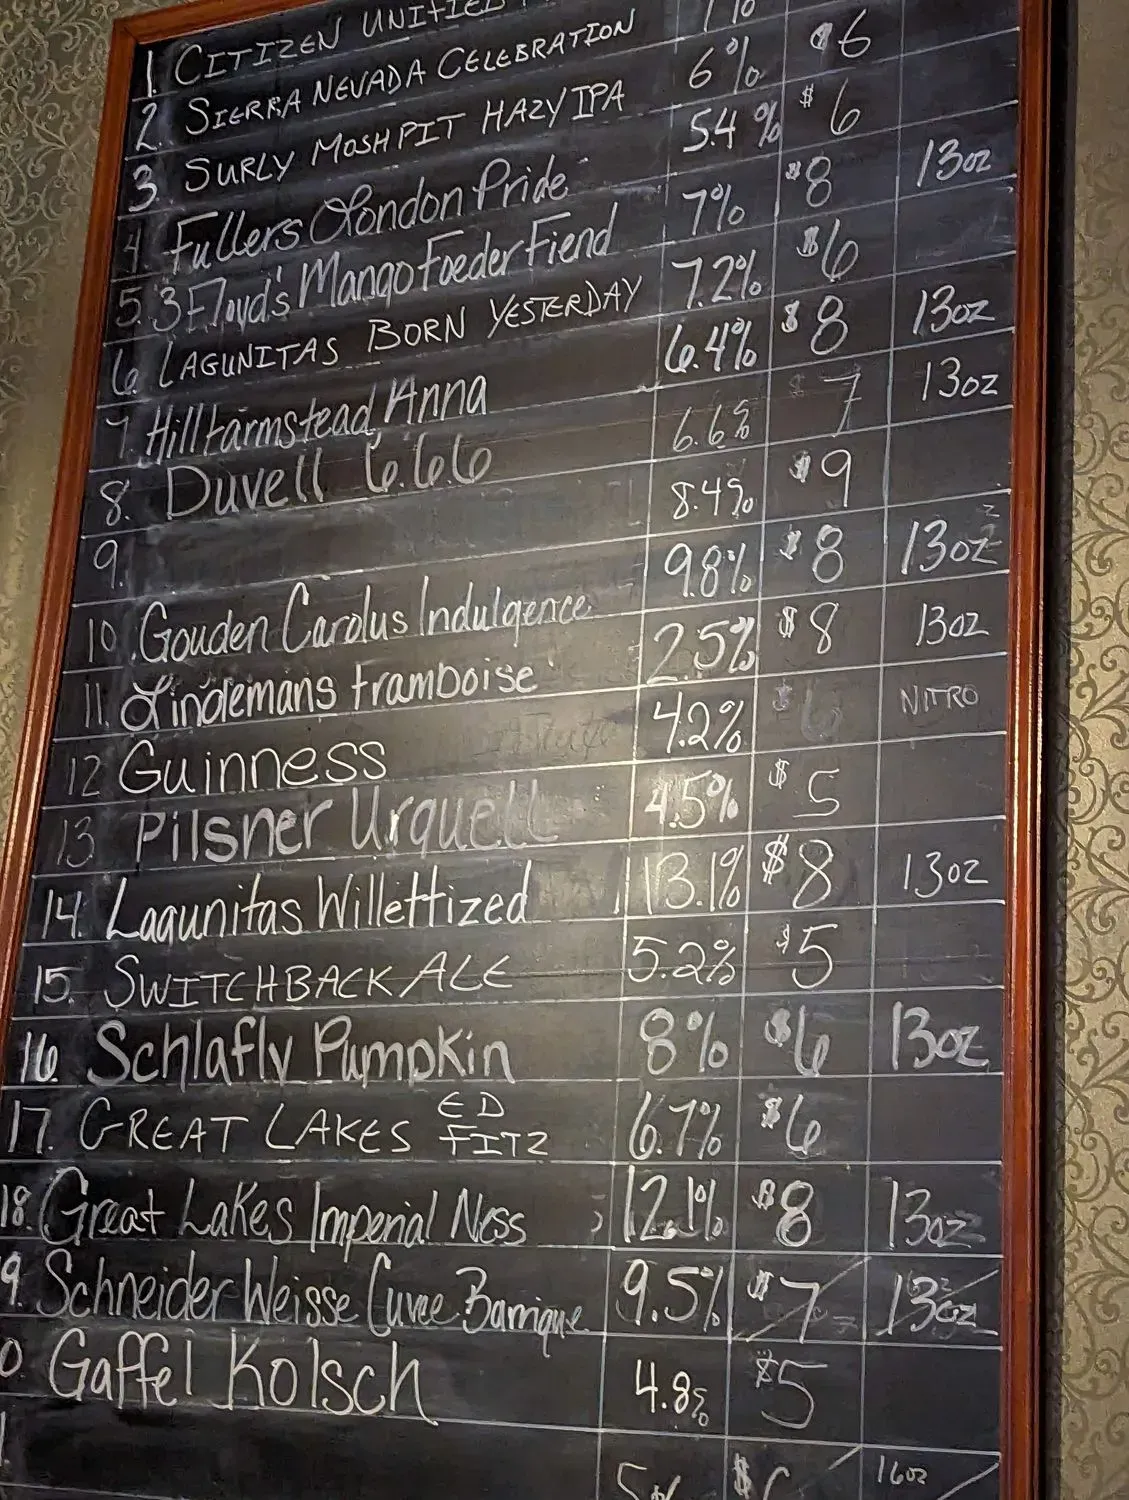 1. CITIZEN UNIFIED
2. SIERRA NEVADA CELEBRATION %
3. SURLY MOSHPIT HAZY IPA 6% $6
4 Fullers London Pride 5.4% $6
5. 3 Floyd's Mango Foeder Fiend 7% $8 13oz
6. LAGUNITAS BORN YESTERDAY 7.2% $6
7 Hill Farmstead Anna 6.4% $8 13oz
8. Duvell 6.66 6.6% $7 13oz
9. 8.4% $9
10. Gouden Carolus Indulgence 9.8% $8 13oz
11. Lindemans framboise 2.5% $8 13oz
12 Guinness 4.2% $6 NITRO
13 Pilsner Urquell 4.5% $5
14. Lagunitas Willettized 13.1% $8 13oz
15. SWITCHBACK ALE 5.2% $5
16. Schlafly Pumpkin 8% $6 13oz
17. GREAT LAKES ED FITZ 6.7% $6
18. Great Lakes Imperial Ness 12.1% $8 13oz
9. Schneider Weisse Cuvee Barrique 9.5% $7 13oz
0. Gaffel Kolsch 4.8% $5
5% $6 16oz